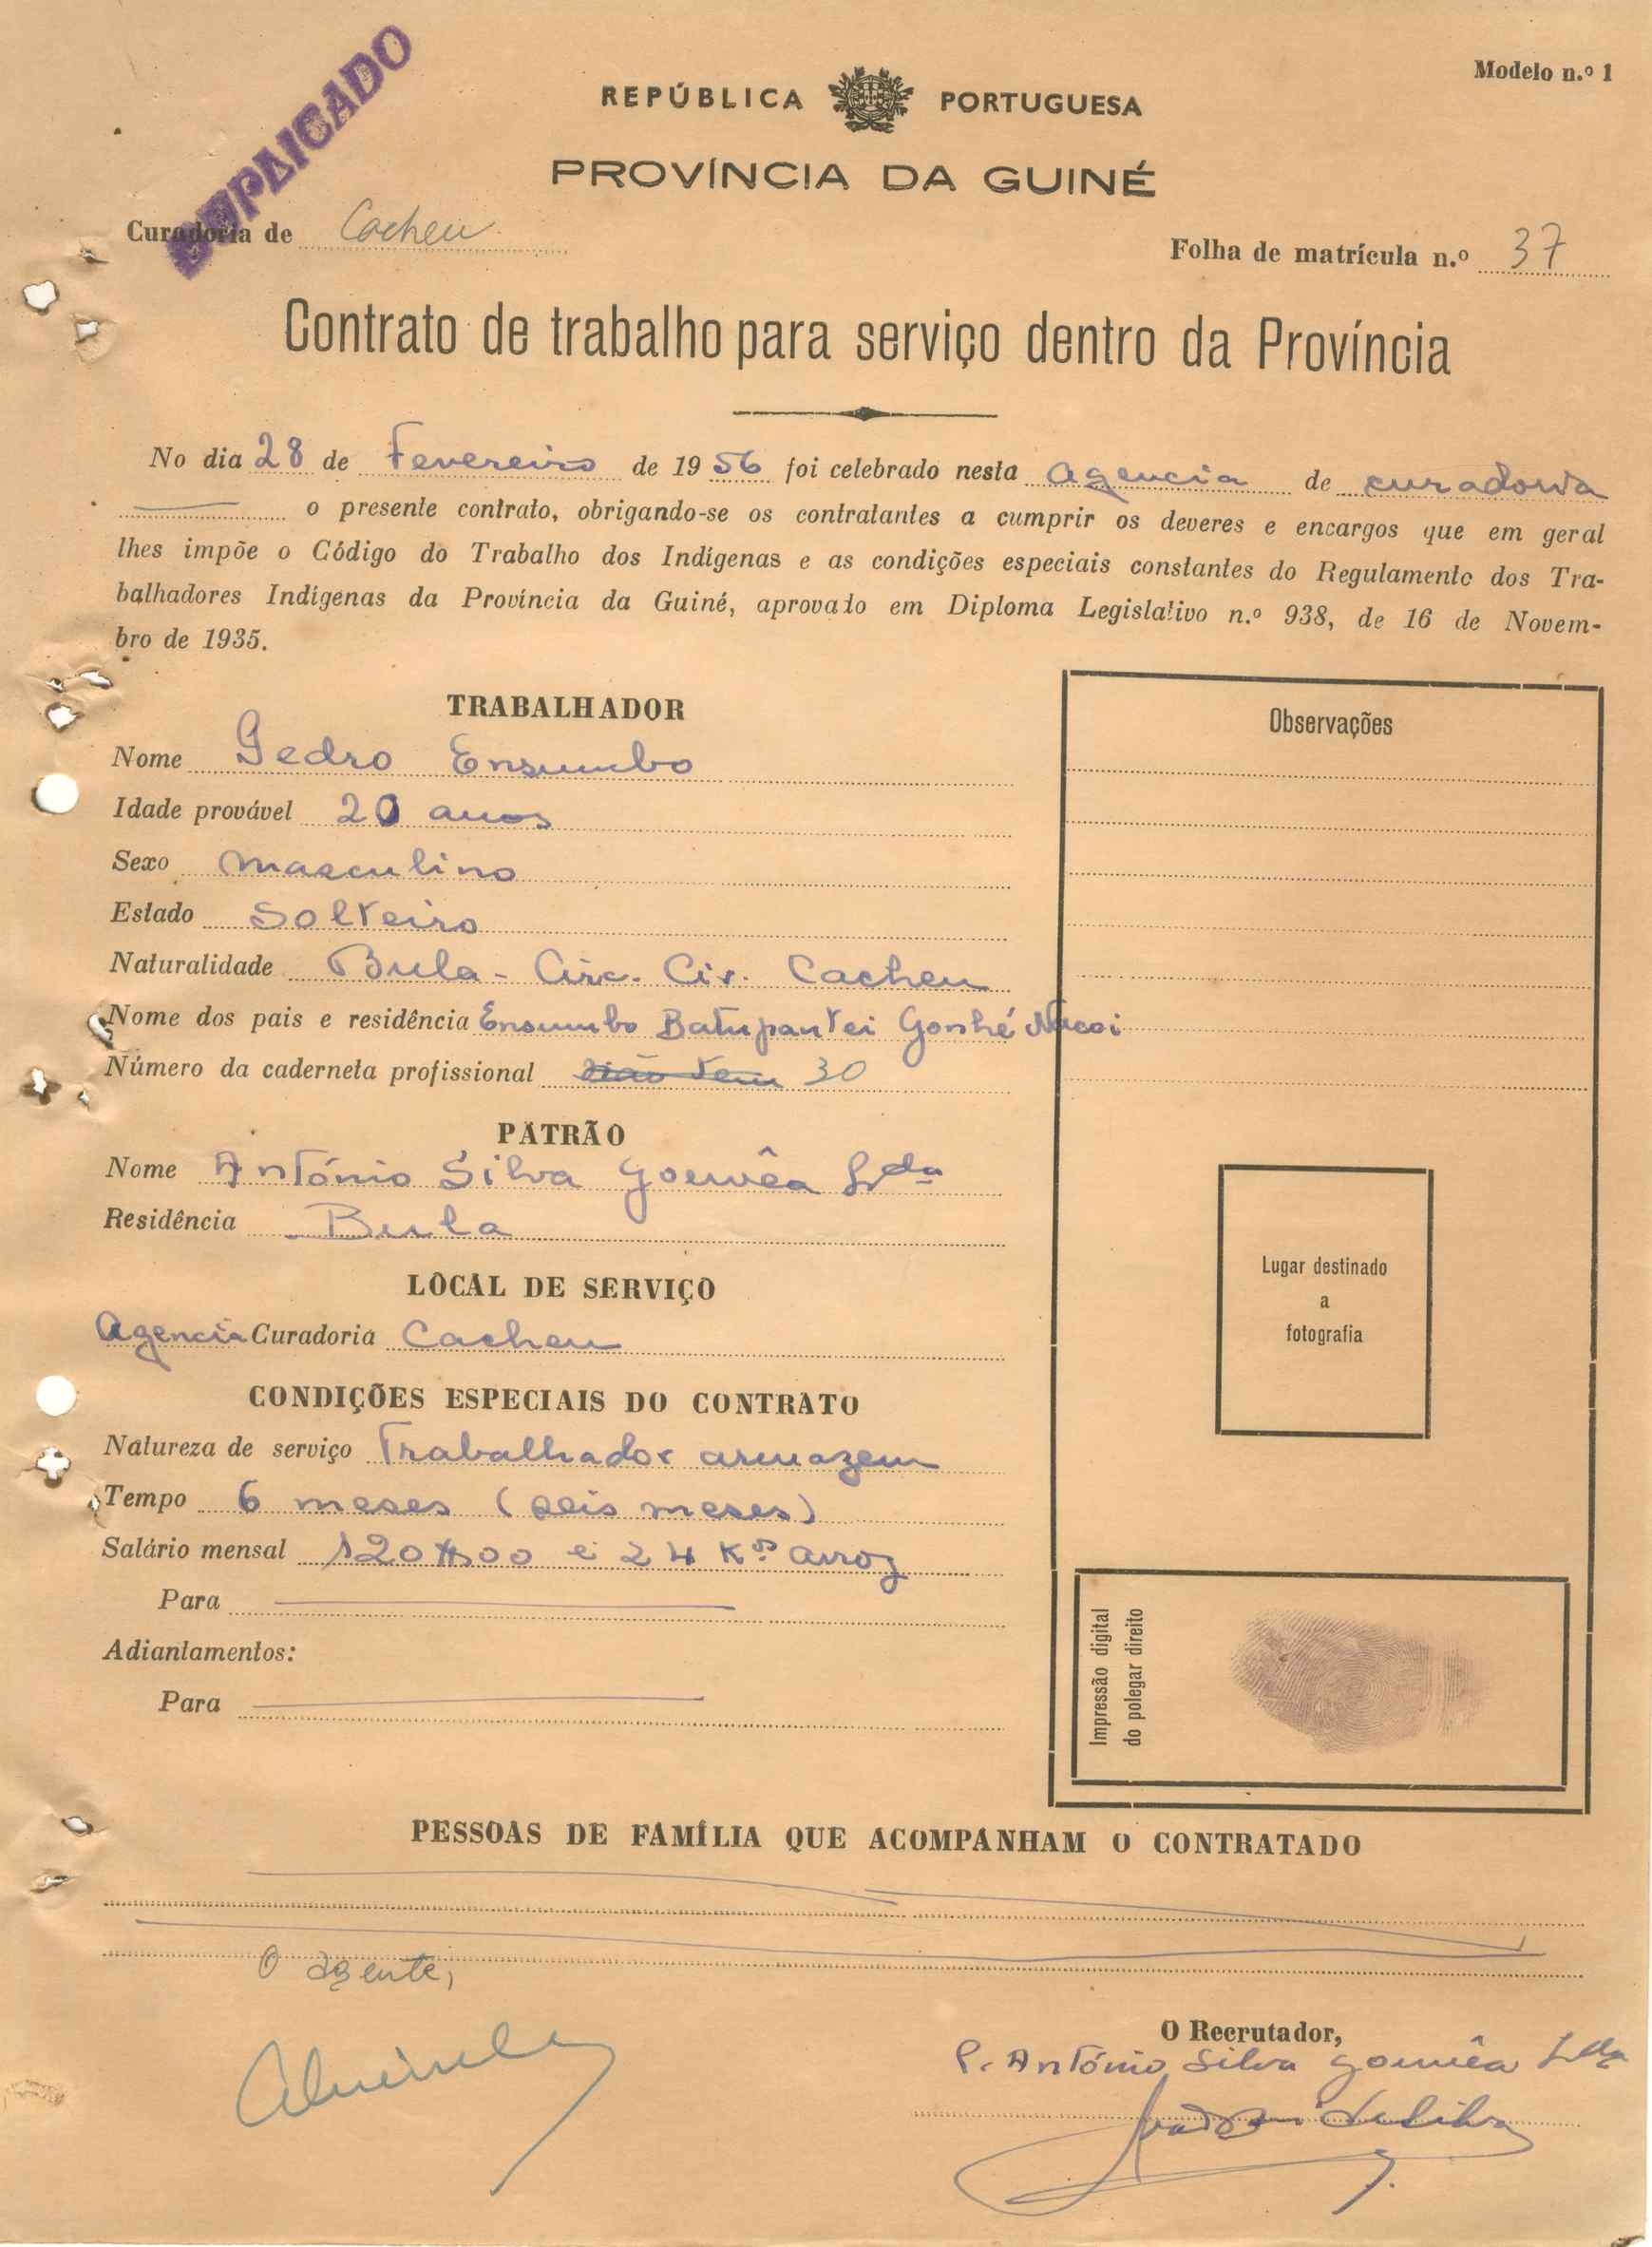 DUPLICADO
Modelo n.º 1
REPÚBLICA PORTUGUESA
PROVÍNCIA DA GUINÉ
Curadoria de Cacheu
Folha de matrícula n.º 37
Contrato de trabalho para serviço dentro da Província
No dia 28 de Fevereiro de 1956 foi celebrado nesta agencia de curadoria
o presente contrato, obrigando-se os contratantes a cumprir os deveres e encargos que em geral
lhes impõe o Código do Trabalho dos Indígenas e as condições especiais constantes do Regulamento dos Tra-
balhadores Indígenas da Província da Guiné, aprovado em Diploma Legislativo n.º 938, de 16 de Novem-
bro de 1935.
TRABALHADOR
Nome Pedro Ensumbo
Idade provável 20 anos
Sexo masculino
Estado Solteiro
Naturalidade Bula - Circ. Civ. Cacheu
Nome dos pais e residência Ensumbo Batupan
Número da caderneta profissional não tem 30
PATRÃO
Nome António Silva Gouvêa Lda
Residência Bula
LOCAL DE SERVIÇO
Agencia Curadoria Cacheu
CONDIÇÕES ESPECIAIS DO CONTRATO
Natureza de serviço Trabalhador armazem
Tempo 6 meses (seis meses)
Salário mensal 120$00 e 24 Kos arroz
Para
Adiantamentos:
Para
Observações
Lugar destinado
a
fotografia
Impressão digital
do polegar direito
PESSOAS DE FAMÍLIA QUE ACOMPANHAM O CONTRATADO
O agente,
O Recrutador,
P. António Silva Gouvêa Lda